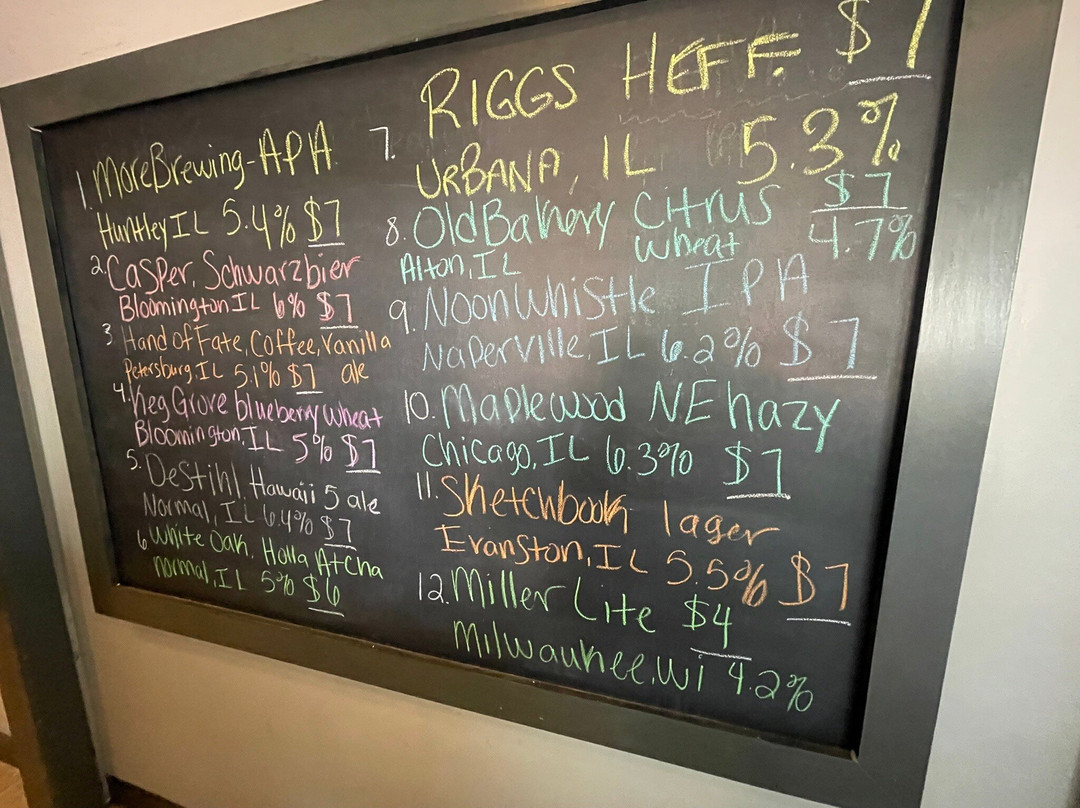 1. MoreBrewing-APA
Huntley IL 5.4% $7
2. Casper, Schwarzbier
Bloomington IL 6% $7
3. Hand of Fate, Coffee, Vanilla
Petersburg, IL 5.1% $7 ale
4. Keg Grove blueberry wheat
Bloomington, IL 5% $7
5. Destihl, Hawaii 5 ale
Normal, IL 6.4% $7
6. White Oak, Holla Atcha
normal, IL 5% $6
7. RIGGS HEFF. $7
URBANA, IL 5.3%
8. Old Bakery Citrus $7
wheat 4.7%
Alton, IL
9. Noon Whistle IPA
Naperville, IL 6.2% $7
10. Maplewood NE hazy
Chicago, IL 6.3% $7
11. Sketchbook lager
Evanston, IL 5.5% $7
12. Miller Lite $4
Milwaukee, Wi 4.2%